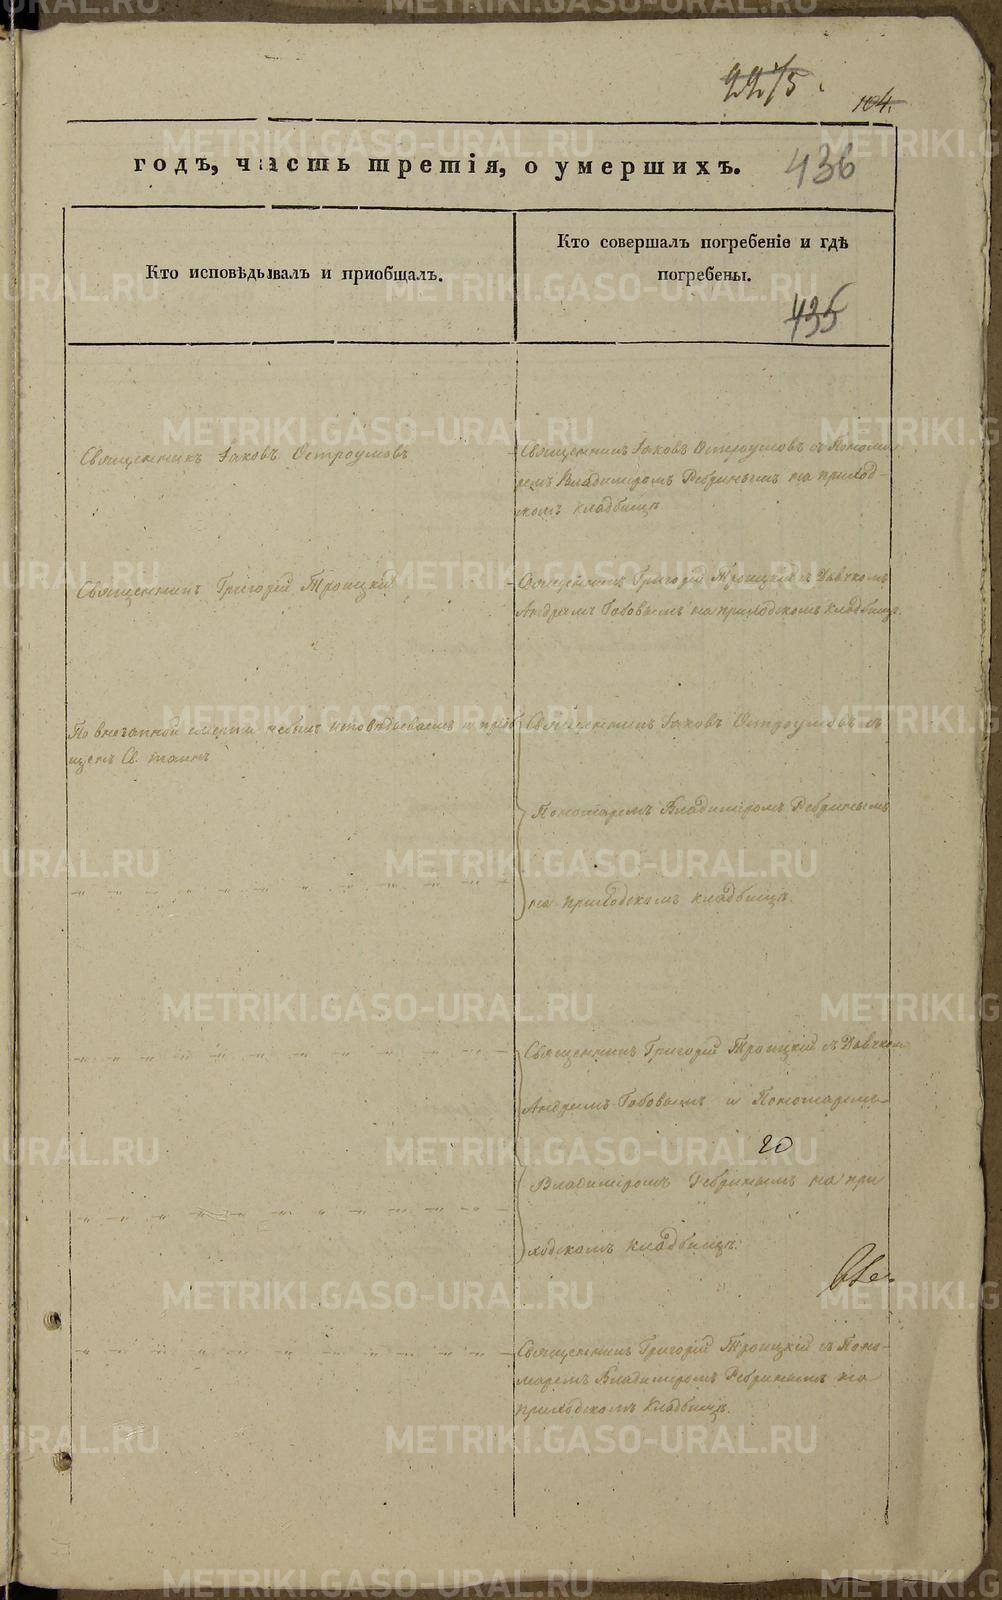 2275.
104.
годъ, часть третія, о умершихъ.
436
Кто исповѣдывалъ и пріобщалъ.
Кто совершалъ погребеніе и гдѣ
погребены.
435
Священникъ Іаковъ Остроумовъ
Священникъ Іаковъ Остроумовъ съ Понома
ремъ Владиміромъ Ребринымъ на приход-
скомъ кладбищѣ
Священникъ Григорій Троицкій
Священникъ Григорій Троицкій съ Дьячкомъ
Андреемъ Бобовымъ на приходскомъ кладбищѣ.
По внезапной смерти небылъ исповѣдываемъ и пріоб
щенъ Св. таинъ
Священникъ Іаковъ Остроумовъ съ
Пономаремъ Владиміромъ Ребринымъ
на приходскомъ кладбищѣ.
Священникъ Григорій Троицкій съ Дьячкомъ
Андреемъ Бобовымъ и Пономаремъ
20
Владиміромъ Ребринымъ на при
ходскомъ кладбищѣ.
Священникъ Григорій Троицкій съ Поно-
маремъ Владиміромъ Ребринымъ на
приходскомъ кладбищѣ.
METRIKI.GASO-URAL.RU